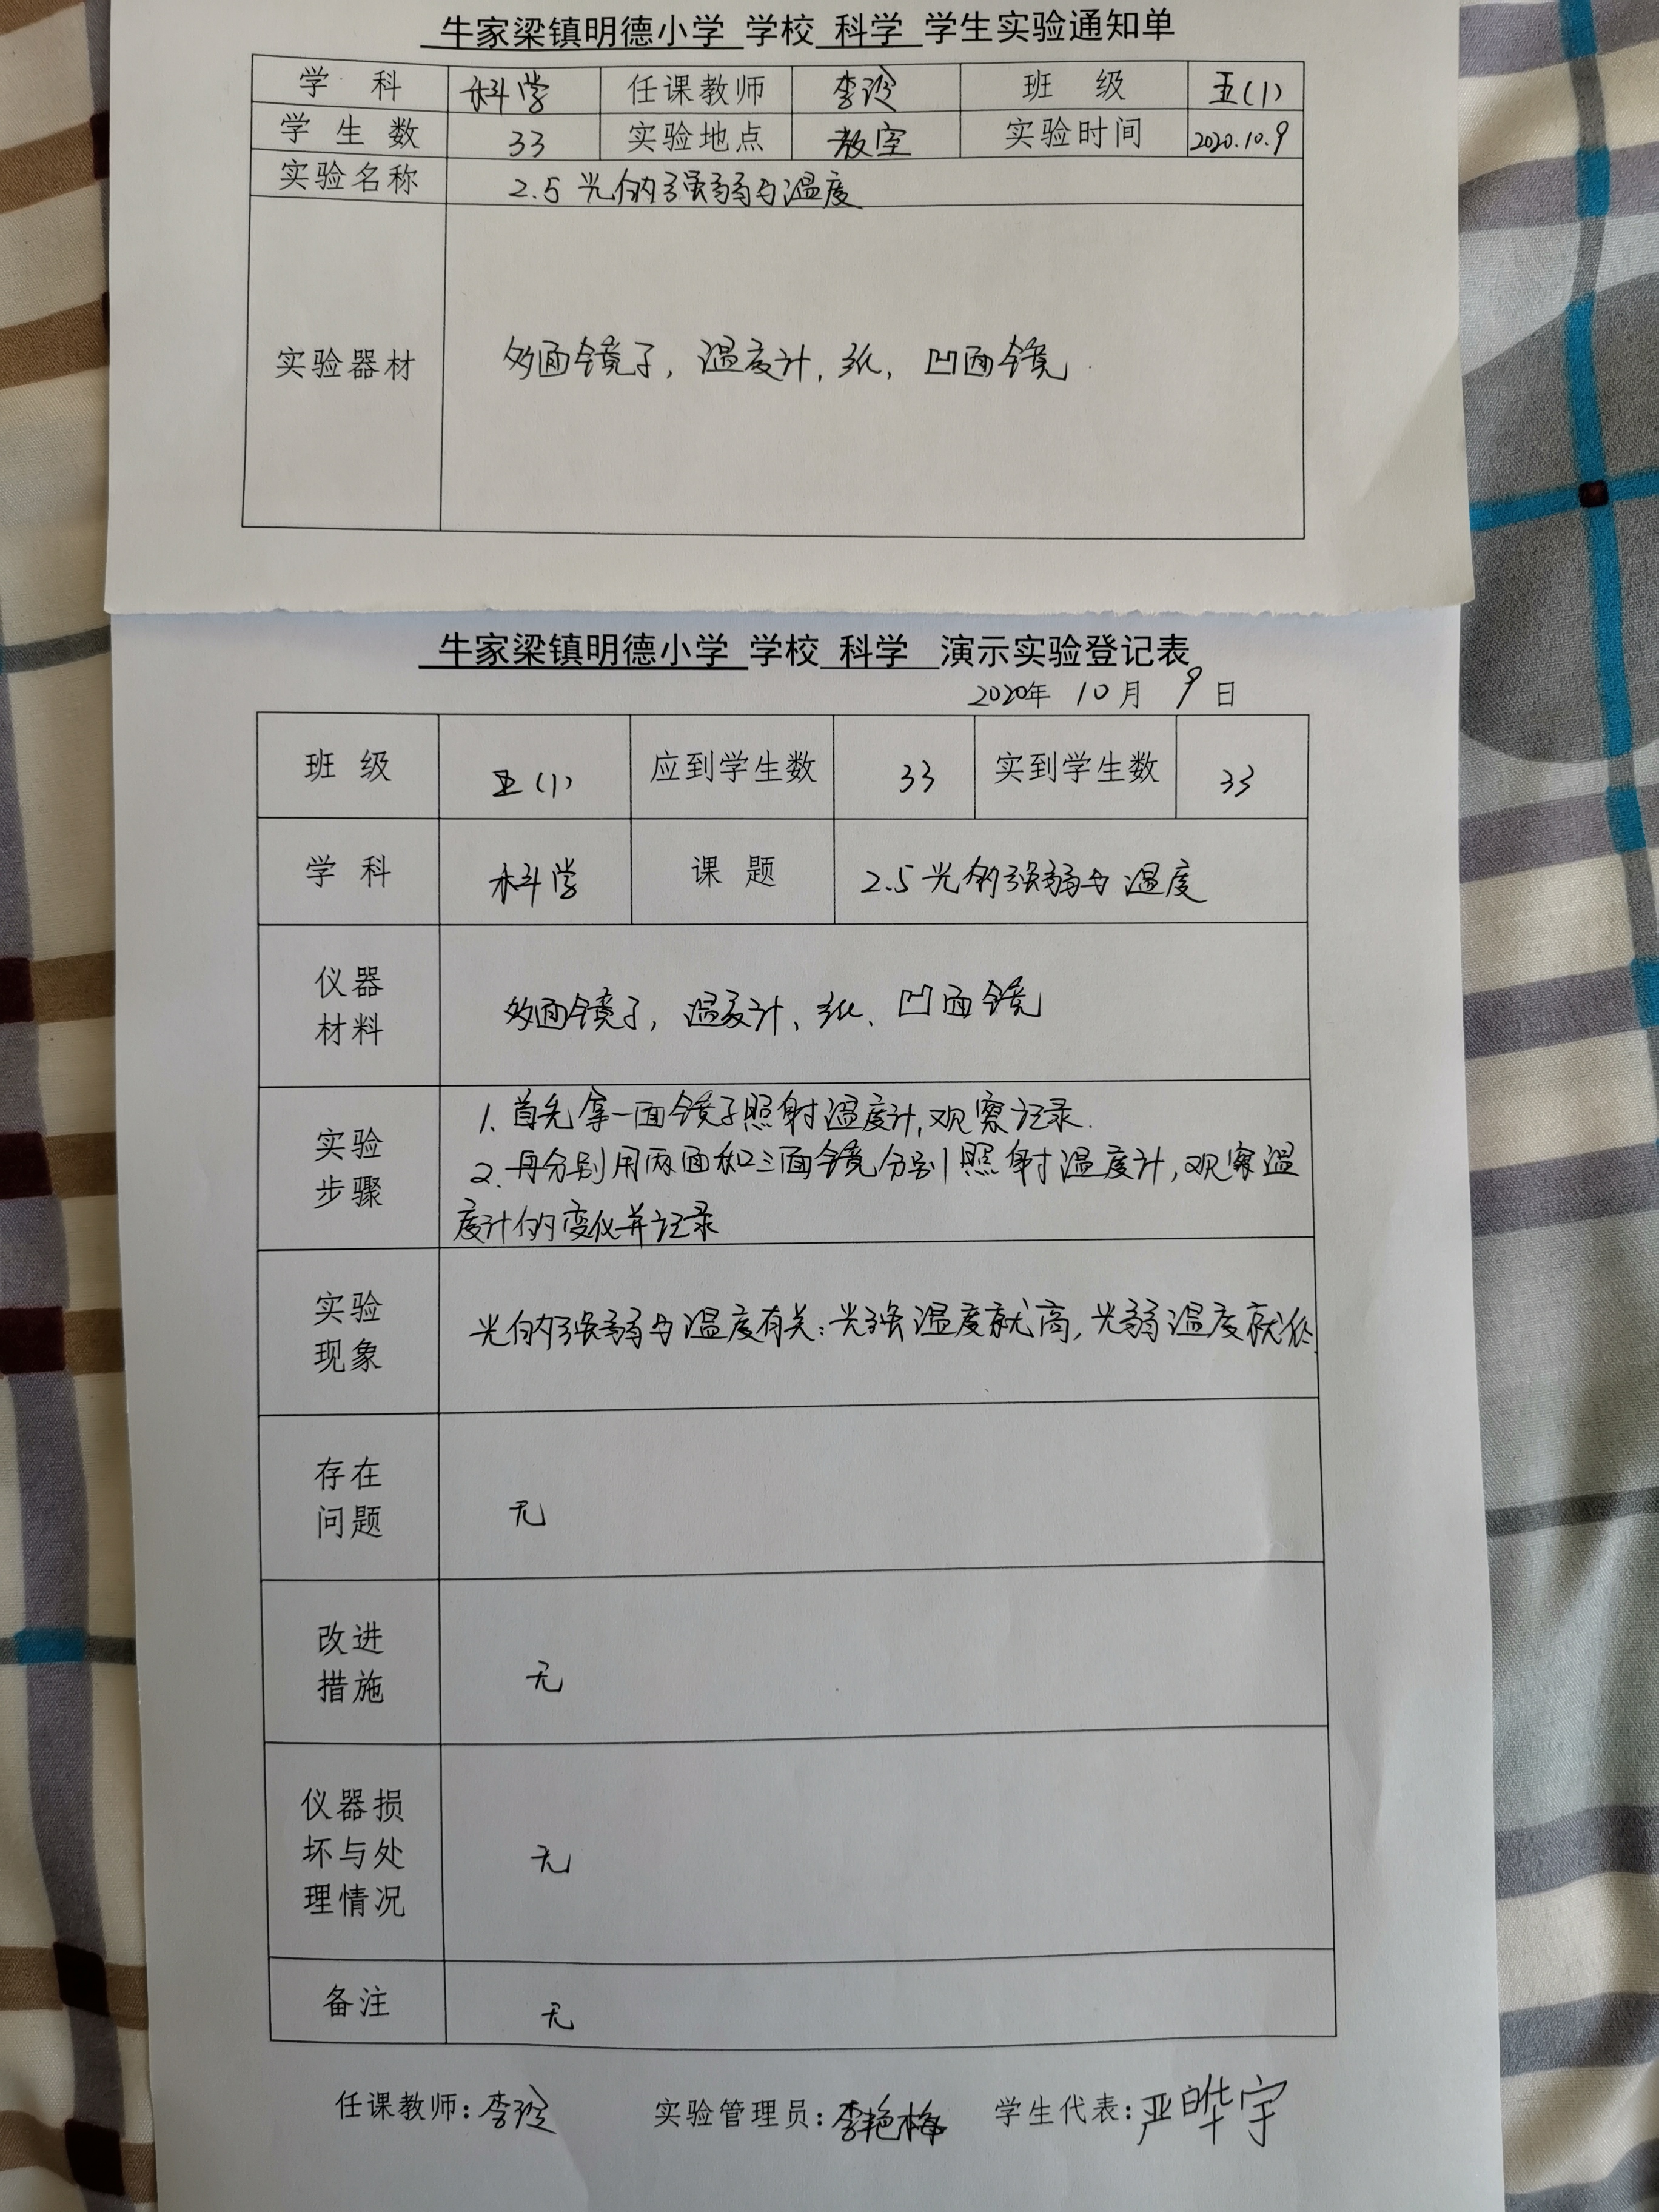 牛家梁镇明德小学 学校 科学 学生实验通知单
学 科 科学 任课教师 李玲 班 级 五(1)
学 生 数 33 实验地点 教室 实验时间 2020.10.9
实验名称 2.5 光的强弱与温度
实验器材 多面镜子, 温度计, 纸, 凹面镜.
牛家梁镇明德小学 学校 科学 演示实验登记表
2020年 10月 9日
班 级 五(1) 应到学生数 33 实到学生数 33
学 科 科学 课 题 2.5 光的强弱与温度
仪器
材料
多面镜子, 温度计、纸、凹面镜
实验
步骤
1. 首先拿一面镜子照射温度计,观察记录.
2. 再分别用两面和三面镜分别照射温度计,观察温
度计的变化并记录
实验
现象
光的强弱与温度有关:光强温度就高,光弱温度就低.
存在
问题
无
改进
措施
无
仪器损
坏与处
理情况
无
备注 无
任课教师:李玲 实验管理员:李艳梅 学生代表:严晔宇